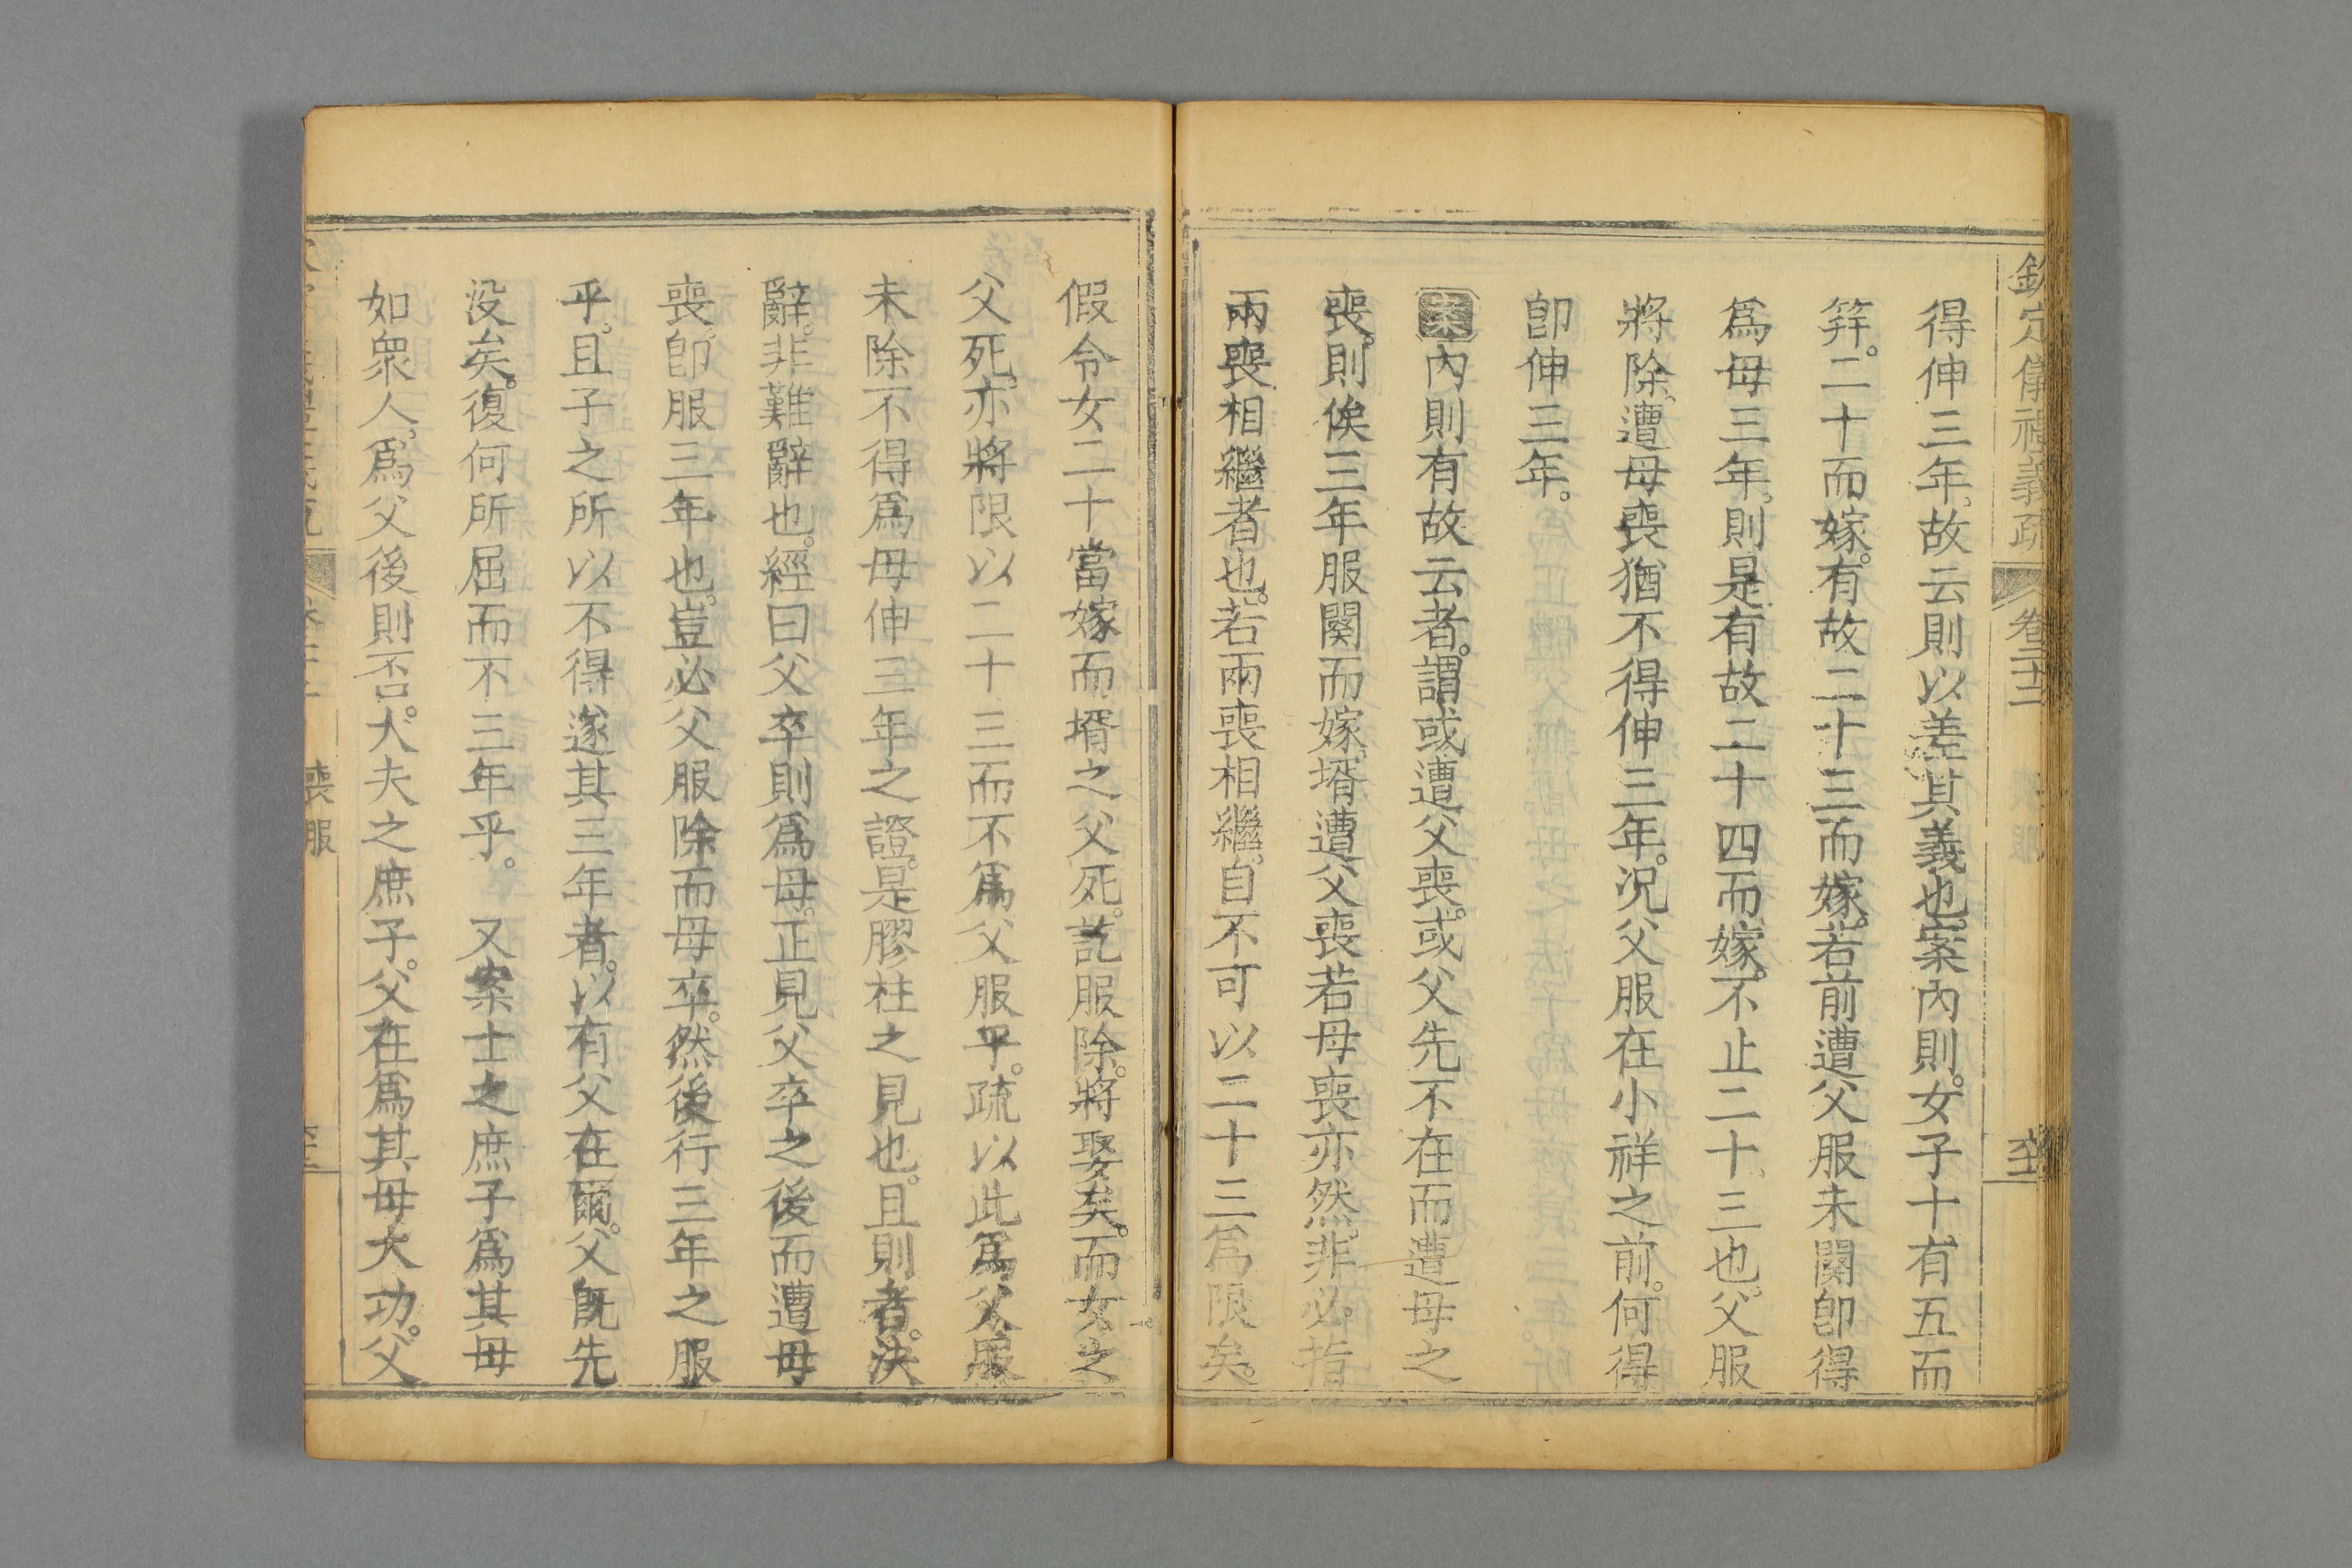 欽定儀禮義疏 卷二十二
得伸三年。故云則以差其義也。案內則。女子十有五而
笄。二十而嫁。有故二十三而嫁。若前遭父服未闋卽得
爲母三年。則是有故二十四而嫁。不止二十三也。父服
將除。遭母喪猶不得伸三年。况父服在小祥之前。何得
卽伸三年。
案內則有故云者。謂或遭父喪。或父先不在而遭母之
喪。則俟三年服闋而嫁。壻遭父喪若母喪亦然。非必指
兩喪相繼者也。若兩喪相繼。自不可以二十三爲限矣。
假令女二十當嫁而壻之父死。訖服除。將娶矣。而女之
父死。亦將限以二十三而不爲父服乎。疏以此爲父服
未除不得爲母伸三年之證。是膠柱之見也。且則者。決
辭。非難辭也。經曰父卒則爲母。正見父卒之後而遭母
喪。卽服三年也。豈必父服除而母卒。然後行三年之服
乎。且子之所以不得遂其三年者。以有父在爾。父旣先
沒矣。復何所屈而不三年乎。 又案士之庶子爲其母
如衆人。爲父後則否。大夫之庶子。父在爲其母大功。父
喪服